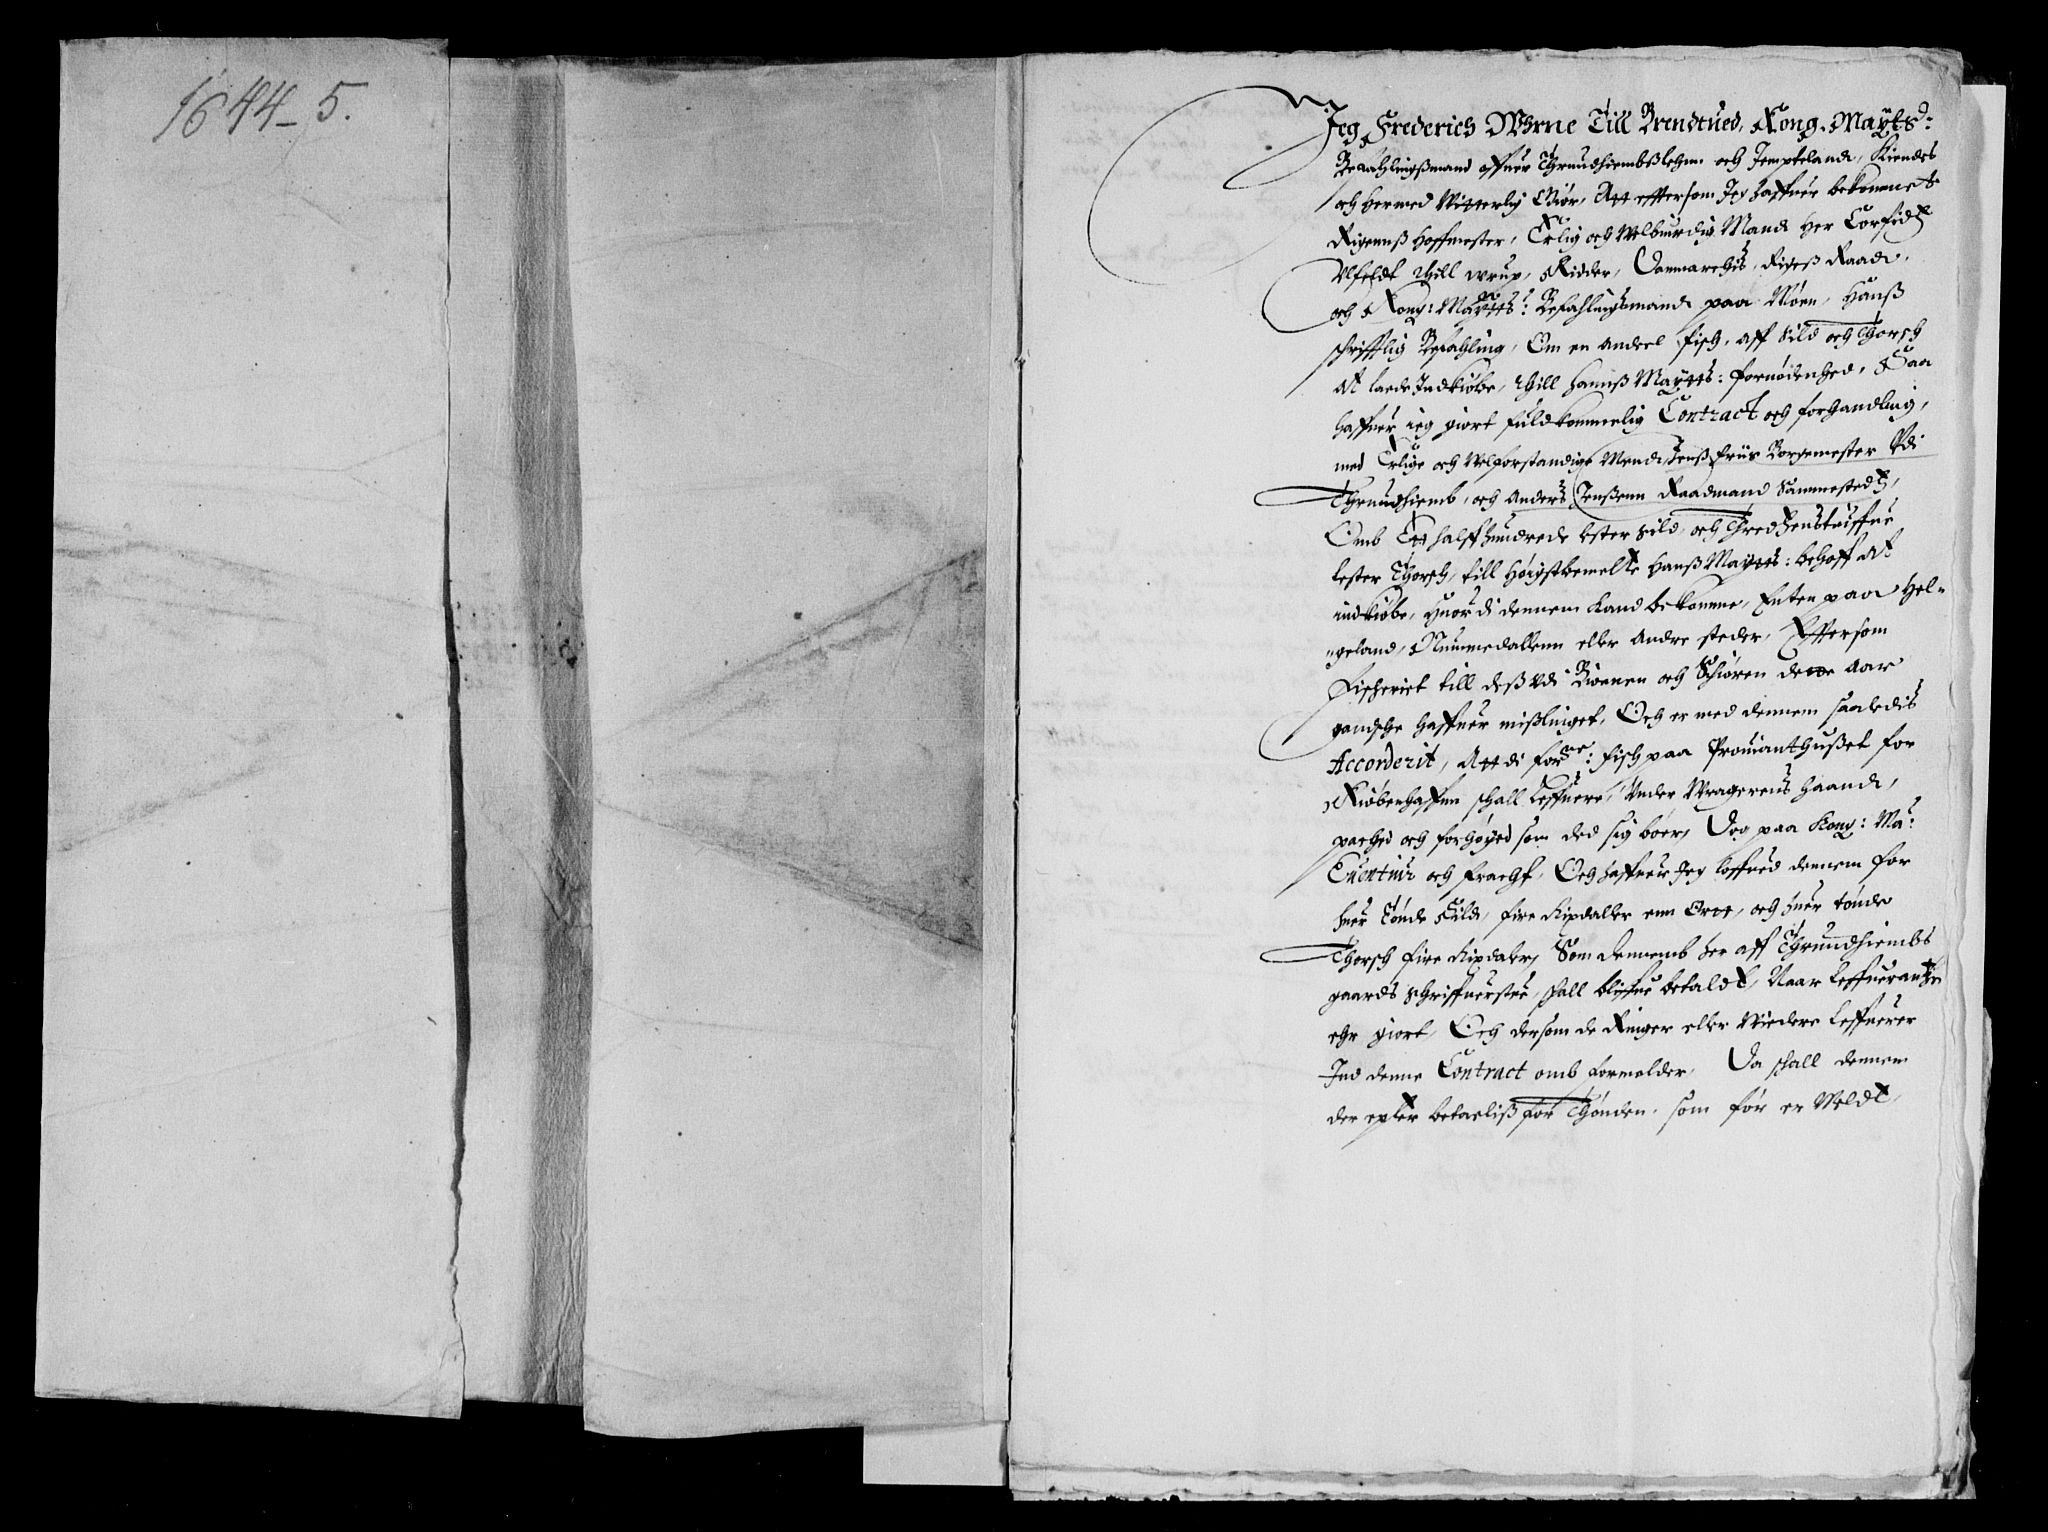 1644-5.
Jeg Frederich Wrne Till Brendtued, Kong. Maÿts:
Befahlingßmand offuer Thrundhiembß lehn och Jempteland, Kiendes
och hermed Witterlig Giør, Att effter som Jeg haffuer bekommet
Rigennß Hoffmester, Erlig och Welburdig Mand Her Corfidtz
Ulfeldt thill wrup, Ridder, Danmarchis, Rigeß Raadt,
och Kong: Maÿtts: Befahlingsmand paa Møen, Hanß
schrifftlig Befahling, Om en andeel fisch, aff Sild och Thorsch
at lade Indkiøbe, thill Hannß Maÿtts: fornødenhed, Saa
haffuer ieg giort fuldkommelig Contract och forhandling,
med Erlige och Welforstandige Mend, Jenß friis Borgemester Udi
Thrundhiemb, och Anders Jenßenn Raadmand Sammestedtz,
Omb Ett halff hundrede lester Sild, och Thredsenstuffue
lester Thorsch, till Høigstbemelte Hanß Maÿtts: behoff at
indkiøbe, Huor di dennem kand bekomme, Enten paa Hel-
geland, Nummedallenn eller andre steder, Effter som
Fischeriet till deß udi Bioenen och Schiøren dette Aar
gandsche haffuer mißlinget, Och er med dennem saaledis
Accorderit, Att di forne: fisch paa Prouianthußet for
Kiøbenhaffuen schall Leffuere, Under Wragerens haand,
pached och forhøyed som ded sig bøer, Dog paa Kong: Ma:
Euentuir och fracht, Och haffuer Jeg loffued dennem for
huer Tønde Sild, fire Rixdaller enn Ort, och huer tønde
Thorsch fire Rixdaler, Som dennemb her aff Thrundhiembs
gaards schriffuerstue, schall bliffue betaldt, Naar Leffuerantzen
ehr giort, Och dersom de Ringer eller Widere Leffuerer
Ind denne Contract omb formelder, Da schall dennem
der epter betaeliß for Thønden, som før er Meldt,